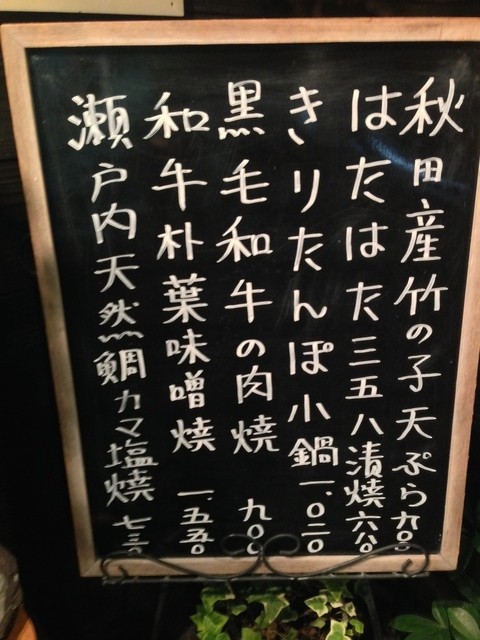 秋田産竹の子天ぷら九〇〇
はたはた三五八漬焼六八〇
きりたんぽ小鍋一、〇二〇
黒毛和牛の肉焼 九〇〇
和牛朴葉味噌焼 一、五五〇
瀬戸内天然鯛カマ塩焼 七三〇